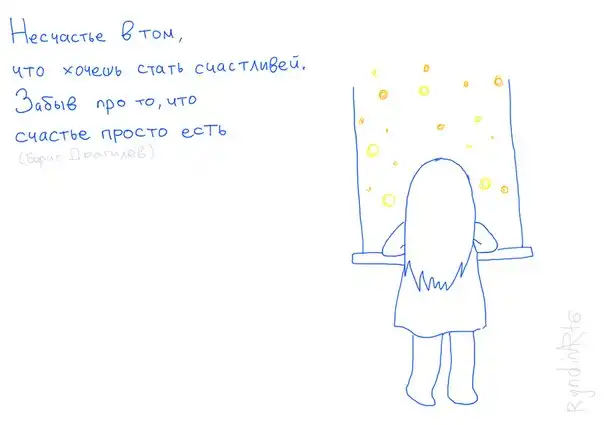 Несчастье в том,
что хочешь стать счастливей.
Забыв про то, что
счастье просто есть
(Борис
RyndinArte